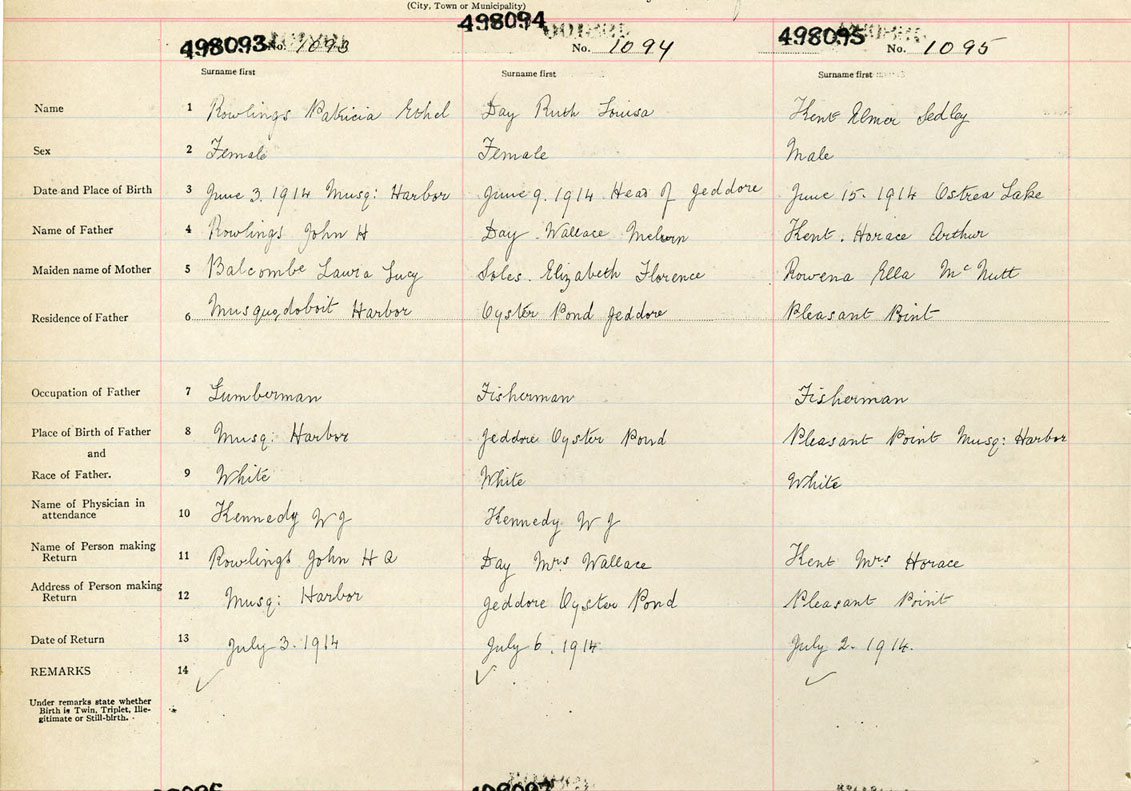 (City, Town or Municipality)
498093 No. 1093 498094 No. 1094 498095 No. 1095
Surname first Surname first Surname first
Name 1 Rowlings Patricia Ethel Day Ruth Louisa Kent Elmer Sedley
Sex 2 Female Female Male
Date and Place of Birth 3 June 3. 1914 Musq: Harbor June 9. 1914 Head of Jeddore June 15. 1914 Ostrea Lake
Name of Father 4 Rowlings John H Day. Wallace Melvin Kent. Horace Arthur
Maiden name of Mother 5 Balcombe Laura Lucy Soles. Elizabeth Florence Rowena Ella McNutt
Residence of Father 6 Musquodoboit Harbor Oyster Pond Jeddore Pleasant Point
Occupation of Father 7 Lumberman Fisherman Fisherman
Place of Birth of Father 8 Musq: Harbor Jeddore Oyster Pond Pleasant Point Musq: Harbor
and
Race of Father. 9 White White White
Name of Physician in
attendance 10 Kennedy W J Kennedy W J
Name of Person making
Return 11 Rowlings John H Day Mrs Wallace Kent Mrs Horace
Address of Person making
Return 12 Musq: Harbor Jeddore Oyster Pond Pleasant Point
Date of Return 13 July 3. 1914 July 6. 1914 July 2. 1914.
REMARKS 14 ✓ ✓ ✓
Under remarks state whether
Birth is Twin, Triplet, Ille-
gitimate or Still-birth.